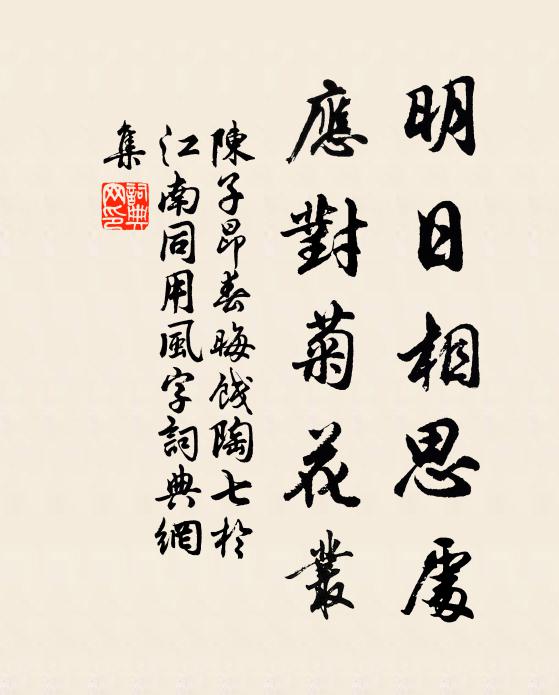 明日相思處
應對菊花叢
陳子昂春晦餞陶七於
江南同用風字詞典網
集
詞典网印